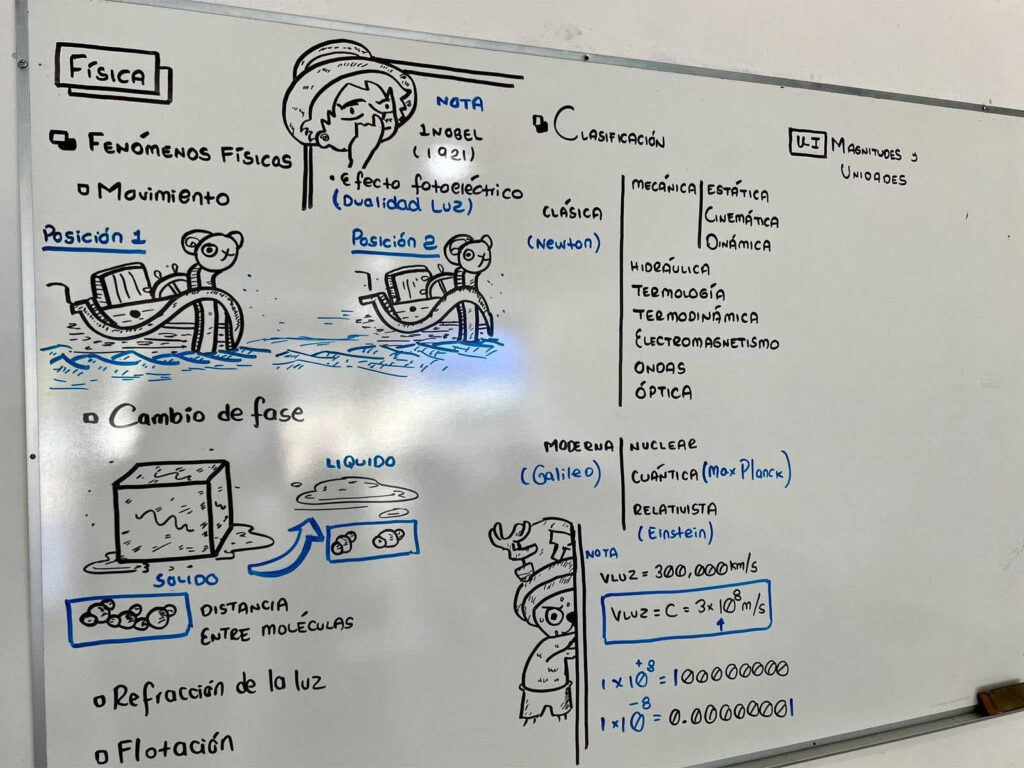 FÍSICA
FENÓMENOS FÍSICOS
Movimiento
Posición 1
Posición 2
NOTA
1 NOBEL
(1921)
• Efecto fotoeléctrico
(Dualidad Luz)
Cambio de fase
LIQUIDO
SÓLIDO
DISTANCIA
ENTRE MOLÉCULAS
Refracción de la luz
Flotación
CLASIFICACIÓN
CLÁSICA
(Newton)
MECÁNICA
ESTÁTICA
CINEMÁTICA
DINÁMICA
HIDRÁULICA
TERMOLOGÍA
TERMODINÁMICA
ELECTROMAGNETISMO
ONDAS
ÓPTICA
MODERNA
(Galileo)
NUCLEAR
CUÁNTICA (Max Planck)
RELATIVISTA
(Einstein)
NOTA
VLUZ = 300,000 km/s
VLUZ = C = 3 x 10⁸ m/s
1 x 10⁺⁸ = 100000000
1 x 10⁻⁸ = 0.00000001
U-I MAGNITUDES y
UNIDADES